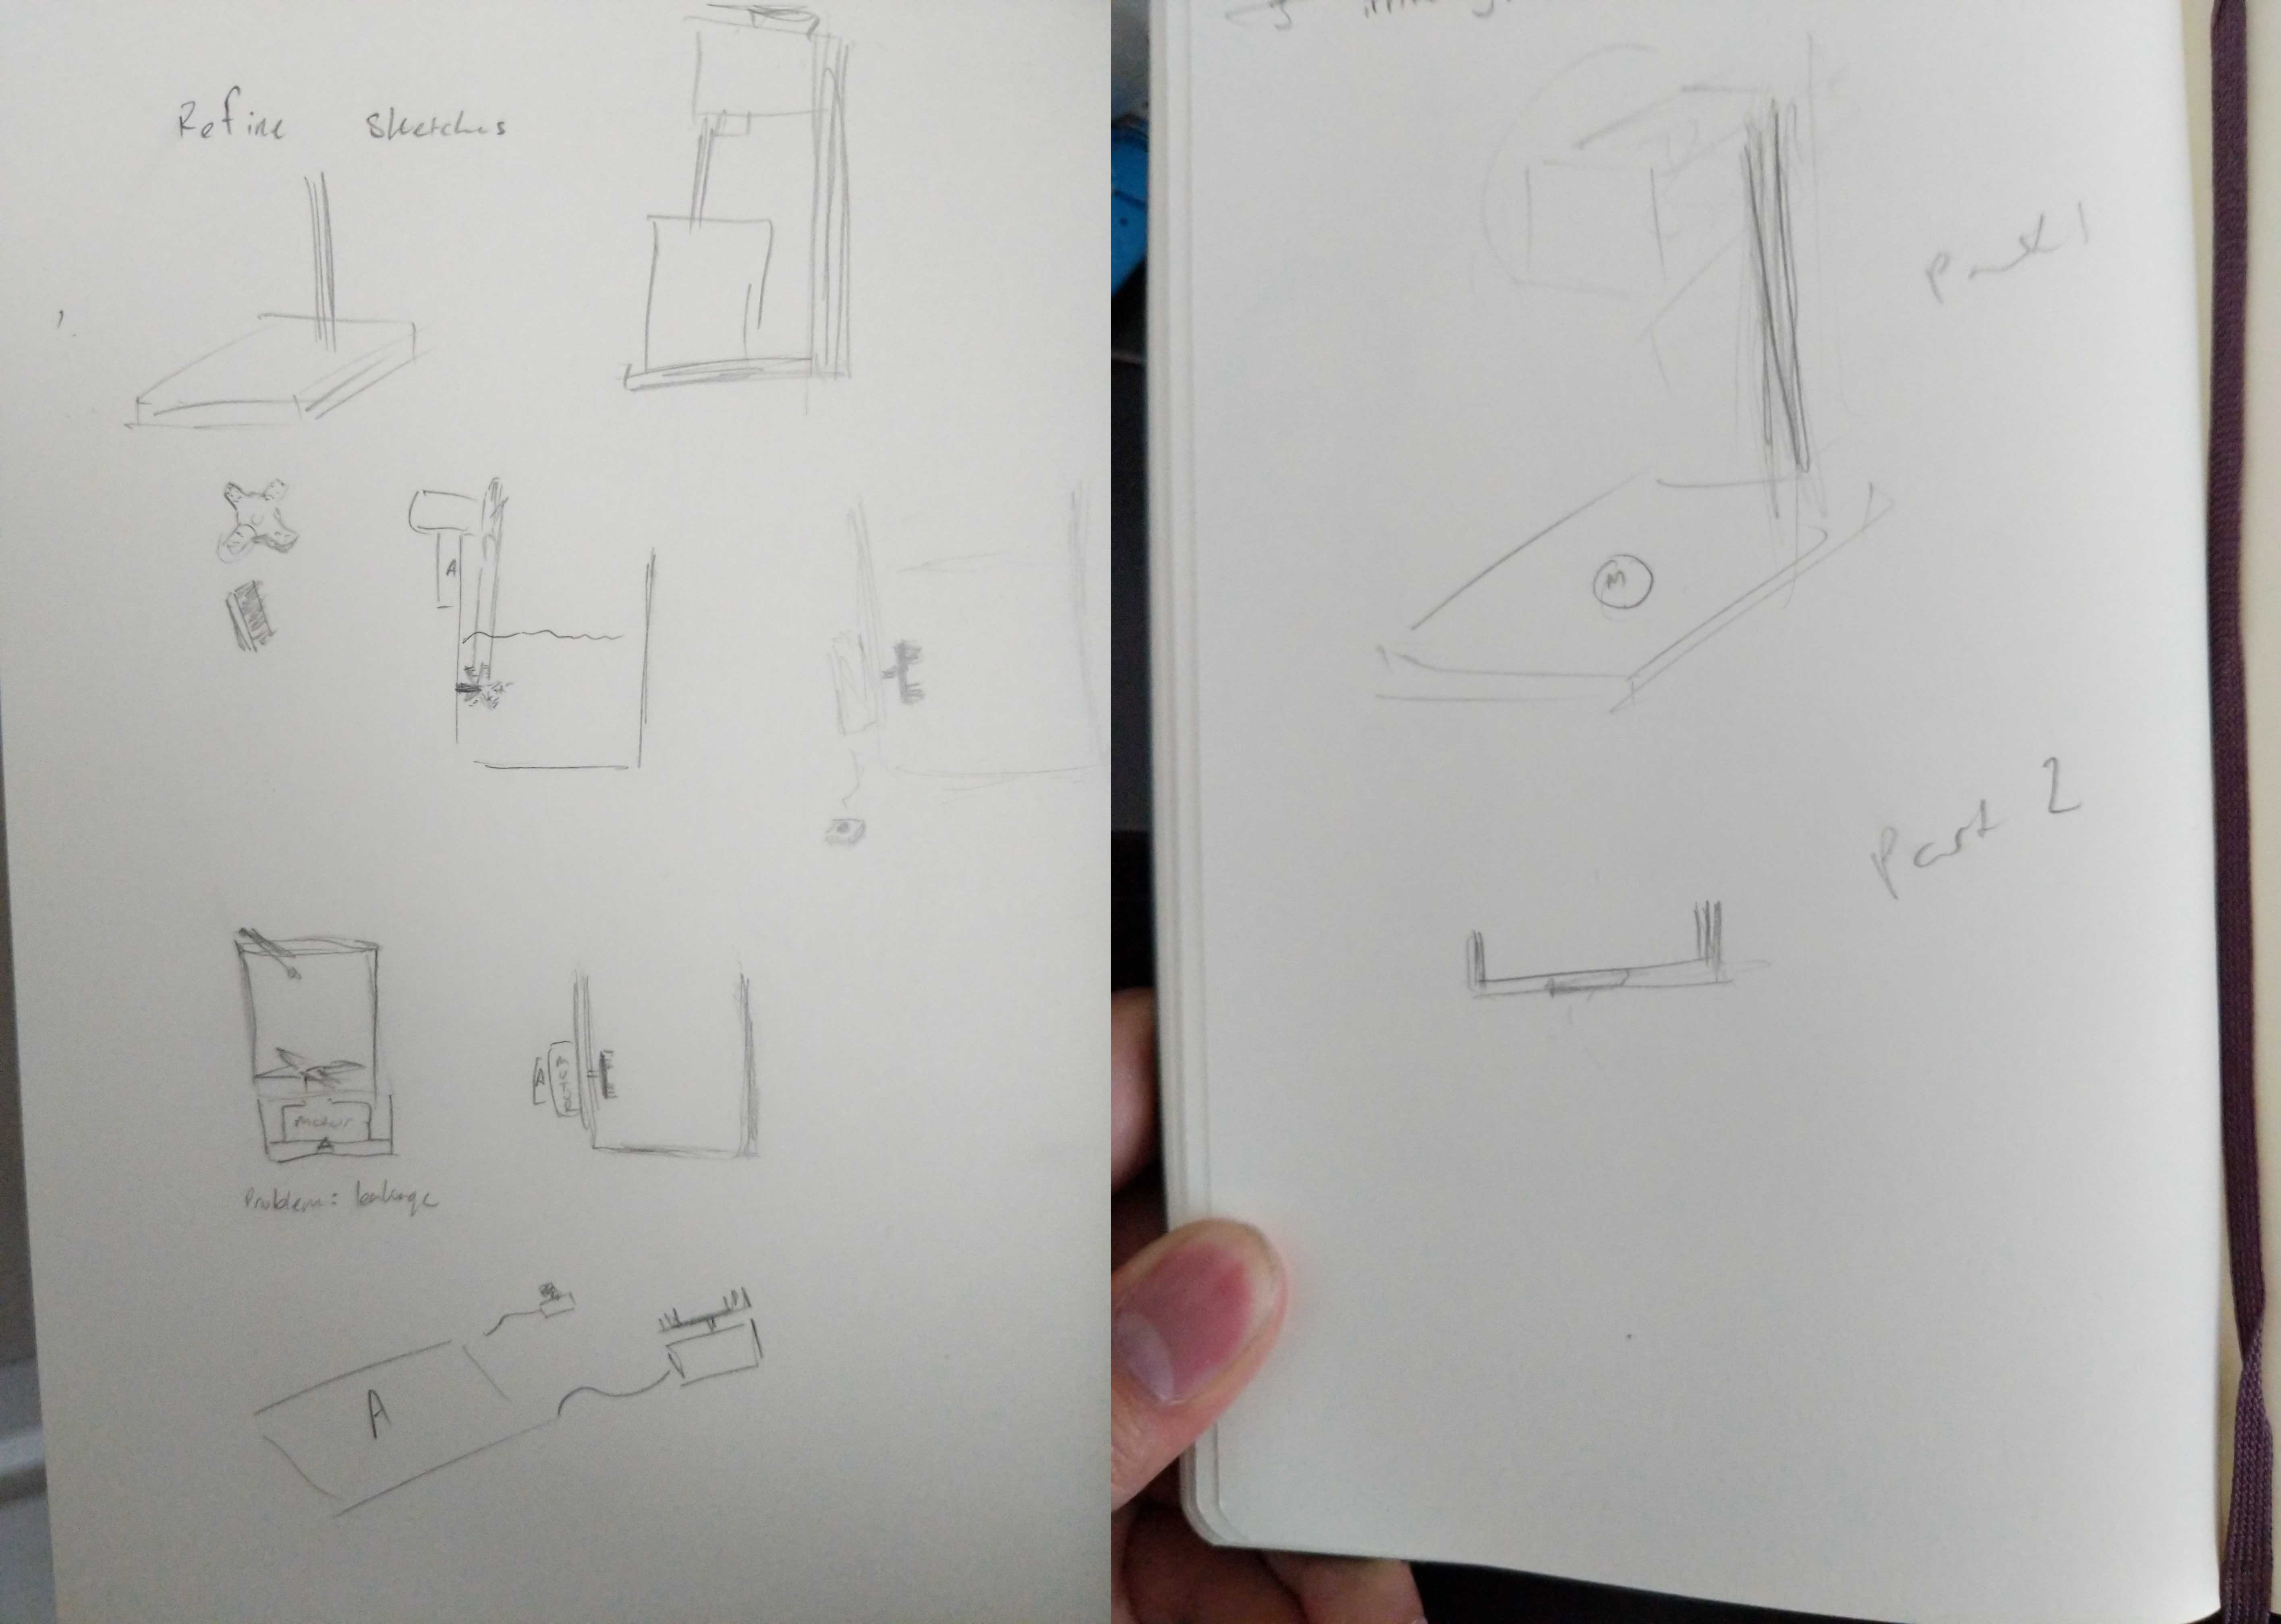 Refine Sketches
A
A
MOTOR
Motor
A
Problem: leakage
A
Part 1
M
Part 2